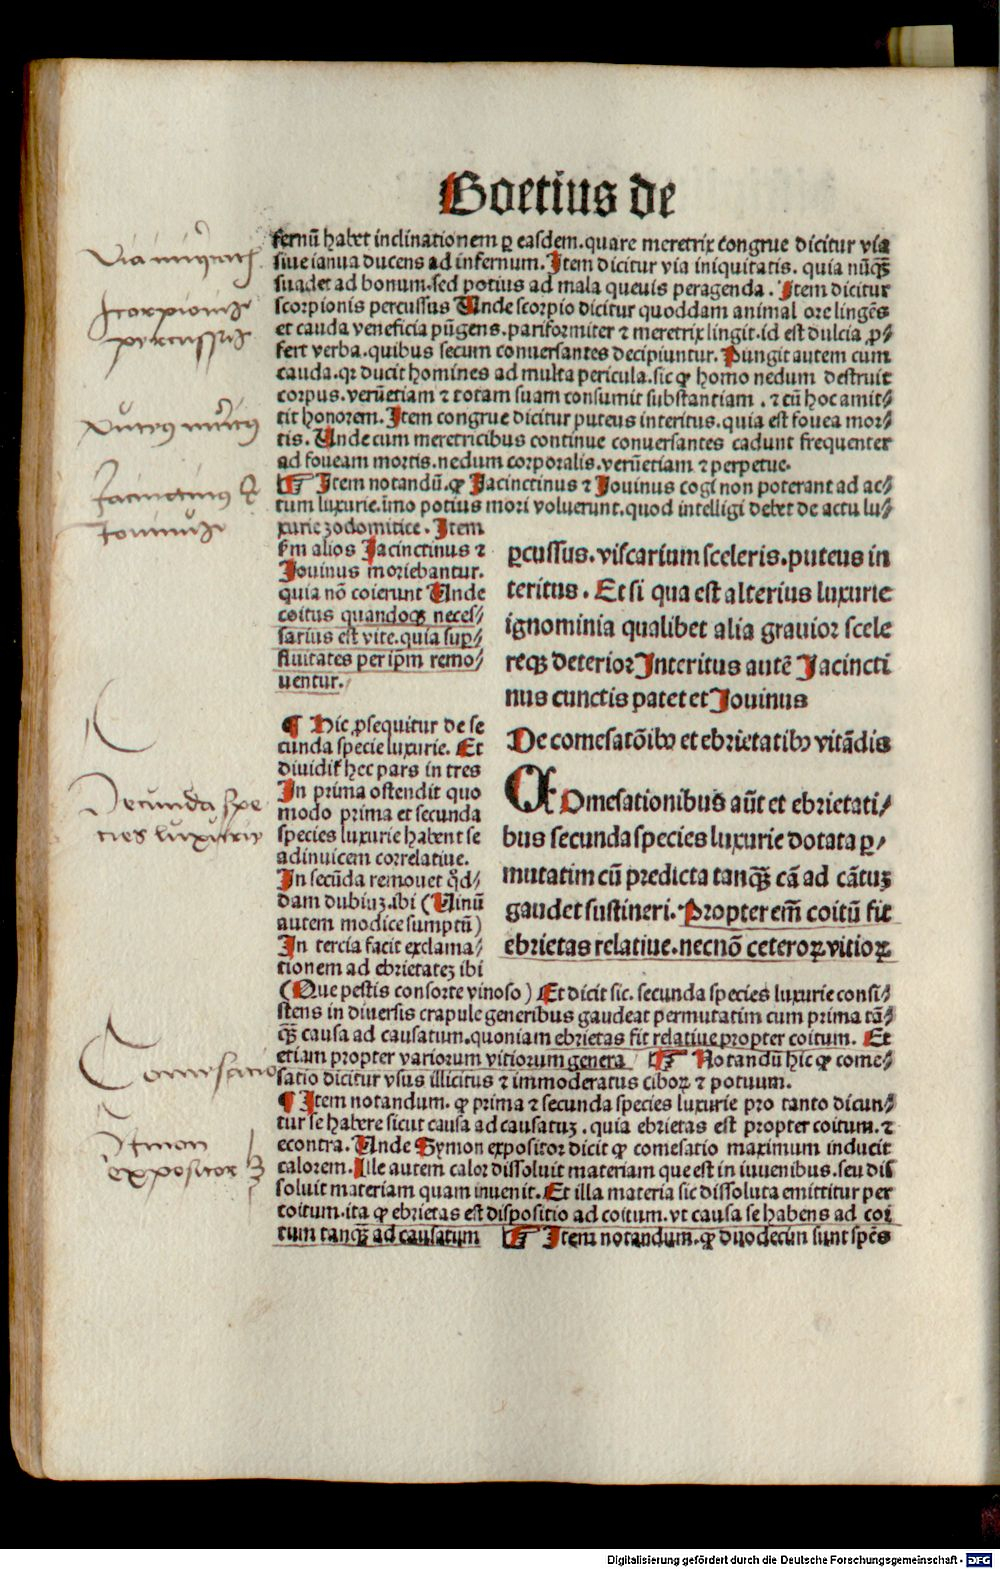 Boetius de
fernū habet inclinationem ꝑ easdem. quare meretrix congrue dicitur via
siue ianua ducens ad infernum. Item dicitur via iniquitatis. quia nūq̄ꝫ
suadet ad bonum. sed potius ad mala queuis peragenda. Item dicitur
scorpionis percussus Unde scorpio dicitur quoddam animal ore lingēs
et cauda veneficia pūgens. pariformiter ⁊ meretrix lingit. id est dulcia ꝓ⸗
fert verba. quibus secum conuersantes decipiuntur. Pungit autem cum
cauda. qꝛ ducit homines ad multa pericula. sic ꝙ homo nedum destruit
corpus. verūetiam ⁊ totam suam consumit substantiam. ⁊ cū hoc amit⸗
tit honorem. Item congrue dicitur puteus interitus. quia est fouea mor⸗
tis. Unde cum meretricibus continue conuersantes cadunt frequenter
ad foueam mortis. nedum corporalis. verūetiam ⁊ perpetue.
☞ Item notandū. ꝙ Jacinctinus ⁊ Jouinus cogi non poterant ad ac⸗
tum luxurie. īmo potius mori voluerunt. quod intelligi debet de actu lu⸗
xurie zodomitice. Item
ẜm alios Jacinctinus ⁊
Jouinus moriebantur.
quia nō coierunt Unde
coitus quandoqꝫ neces⸗
sarius est vite. quia suꝑ⸗
fluitates per ip̄m remo⸗
uentur.
¶ Hic ꝓsequitur de se
cunda specie luxurie. Et
diuidit̄ hec pars in tres
In prima ostendit quo
modo prima et secunda
species luxurie habent se
adinuicem correlatiue.
In secūda remouet qd⸗
dam dubiuꝫ. ibi (Uinū
autem modice sumptū)
In tercia facit exclama⸗
tionem ad ebrietateꝫ ibi
ꝑcussus. viscarium sceleris. puteus in
teritus. Et si qua est alterius luxurie
ignominia qualibet alia grauior scele
reqꝫ deterior Interitus autē Jacincti
nus cunctis patet et Jouinus
De comesatōibꝰ et ebrietatibꝰ vitādis
COmesationibus aūt et ebrietati⸗
bus secunda species luxurie dotata ꝑ⸗
mutatim cū predicta tanq̄ꝫ cā ad cātuꝫ
gaudet sustineri. Propter em̄ coitū fit
ebrietas relatiue. necnō ceteroꝝ vitioꝝ
(Que pestis consorte vinoso) Et dicit sic. secunda species luxurie consi⸗
stens in diuersis crapule generibus gaudeat permutatim cum prima tā⸗
q̄ꝫ causa ad causatum. quoniam ebrietas fit relatiue propter coitum. Et
etiam propter variorum vitiorum genera ☞ Notandū hic ꝙ come⸗
satio dicitur vsus illicitus ⁊ immoderatus ciboꝝ ⁊ potuum.
¶ Item notandum. ꝙ prima ⁊ secunda species luxurie pro tanto dicun⸗
tur se habere sicut causa ad causatuꝫ. quia ebrietas est propter coitum. ⁊
econtra. Unde Symon expositor dicit ꝙ comesatio maximum inducit
calorem. Ille autem calor dissoluit materiam que est in iuuenibus. seu dis
soluit materiam quam inuenit. Et illa materia sic dissoluta emittitur per
coitum. ita ꝙ ebrietas est dispositio ad coitum. vt causa se habens ad coi
tum tanq̄ꝫ ad causatum ☞ Item notandum. ꝙ duodecim sunt spēs
Via
scorpionis
percussus
puteus
Jacinctinus &
Jouinus
Secunda spe
cies luxurie
Comesacio
Simon
expositor
Digitalisierung gefördert durch die Deutsche Forschungsgemeinschaft - DFG